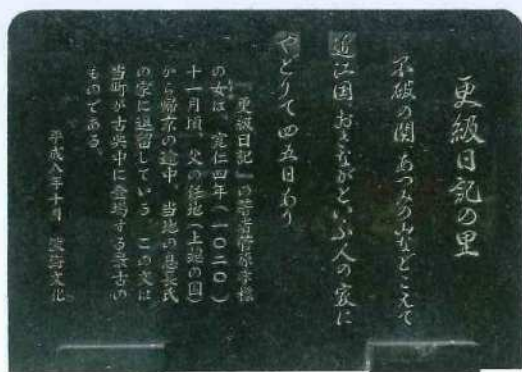 更級日記の里
不破の関 あつみの山などこえて
近江国 おきながといふ人の家に
やどりて四五日あり
『更級日記』の著者菅原孝標
の女は、寛仁四年(一〇二〇)
十一月頃、父の任地(上総の国)
から帰京の途中、当地の息長氏
の家に逗留している。この文は
当町が古典中に登場する最古の
ものである。
平成八年十月